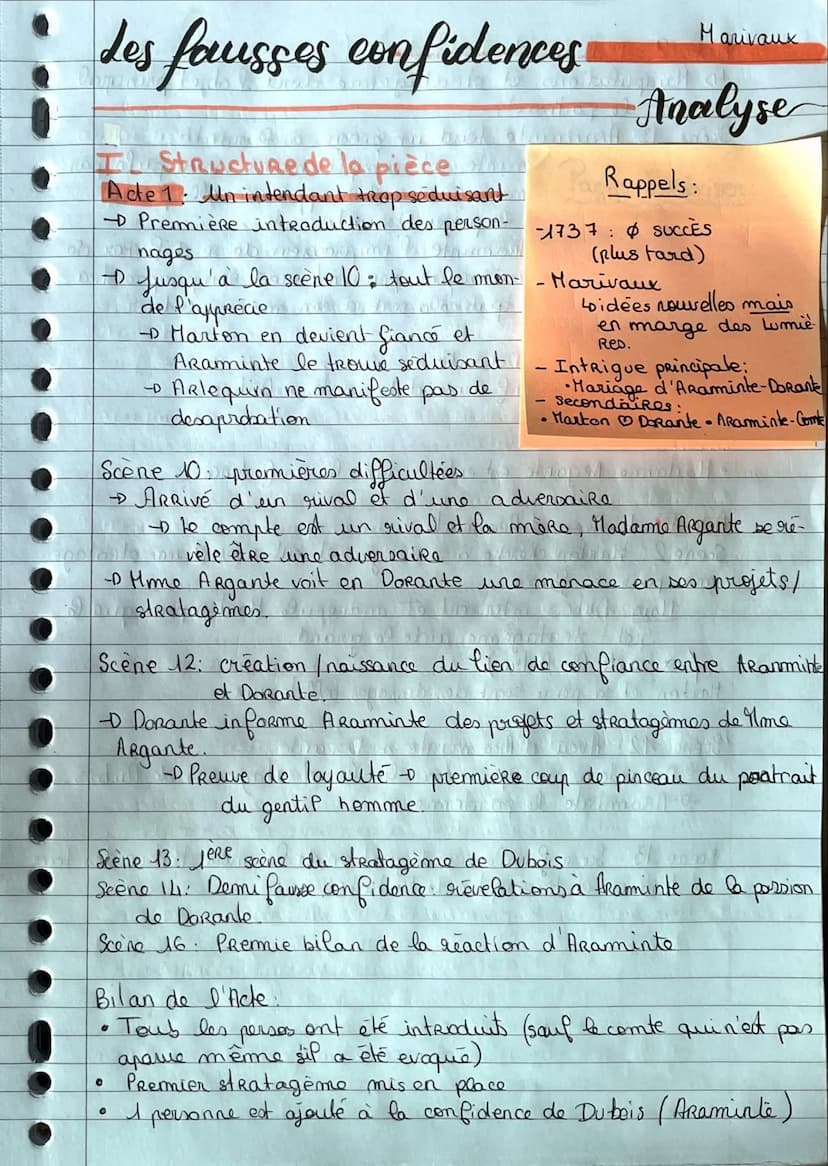 Les fausses confidences
Marivaux
Analyse
I. Structure de la pièce
Acte 1 : Un intendant trop séduisant
→ Première introduction des person-
nages
→ Jusqu'à la scène 10 : tout le mon-
de l'apprécie
→ Marton en devient fiancé et
Araminte le trouve séduisant
→ Arlequin ne manifeste pas de
desaprobation
Rappels :
- 1737 : ø succès
(plus tard)
- Marivaux
↳ idées nouvelles mais
en marge des Lumiè-
res.
- Intrigue principale :
• Mariage d'Araminte-Dorante
- secondaires :
• Marton ♡ Dorante • Araminte-Comte
Scène 10 : premières difficultées
→ Arrivé d'un rival et d'une adversaire
→ le compte est un rival et la mère, Madame Argante se ré-
vèle être une adversaire
→ Mme Argante voit en Dorante une menace en ses projets/
stratagèmes.
Scène 12 : création/naissance du lien de confiance entre Aranminte
et Dorante.
→ Dorante informe Araminte des projets et stratagèmes de Mme
Argante.
→ Preuve de loyauté → première coup de pinceau du portrait
du gentil homme.
Scène 13 : 1ère scène du stratagème de Dubois
Scène 14 : Demi fausse confidence : révélations à Araminte de la passion
de Dorante.
Scène 16 : Premie bilan de la réaction d'Araminte
Bilan de l'Acte :
• Tous les persos ont été introduits (sauf le comte qui n'est pas
aparue même s'il a été evoqué)
• Premier stratagème mis en place
• 1 personne est ajouté à la confidence de Dubois (Araminte)